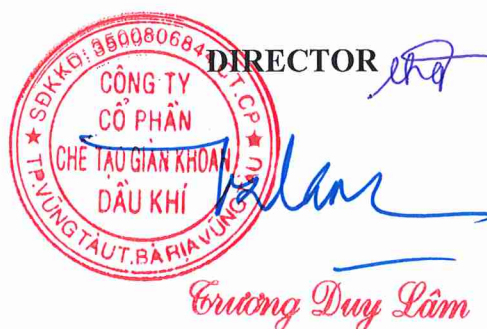 DIRECTOR
SĐKKD: 350080684
C.T.C.P
CÔNG TY
CỔ PHẦN
CHẾ TẠO GIÀN KHOAN
DẦU KHÍ
TP.VŨNG TÀU T.BÀ RỊA VŨNG TÀU
Trương Duy Lâm